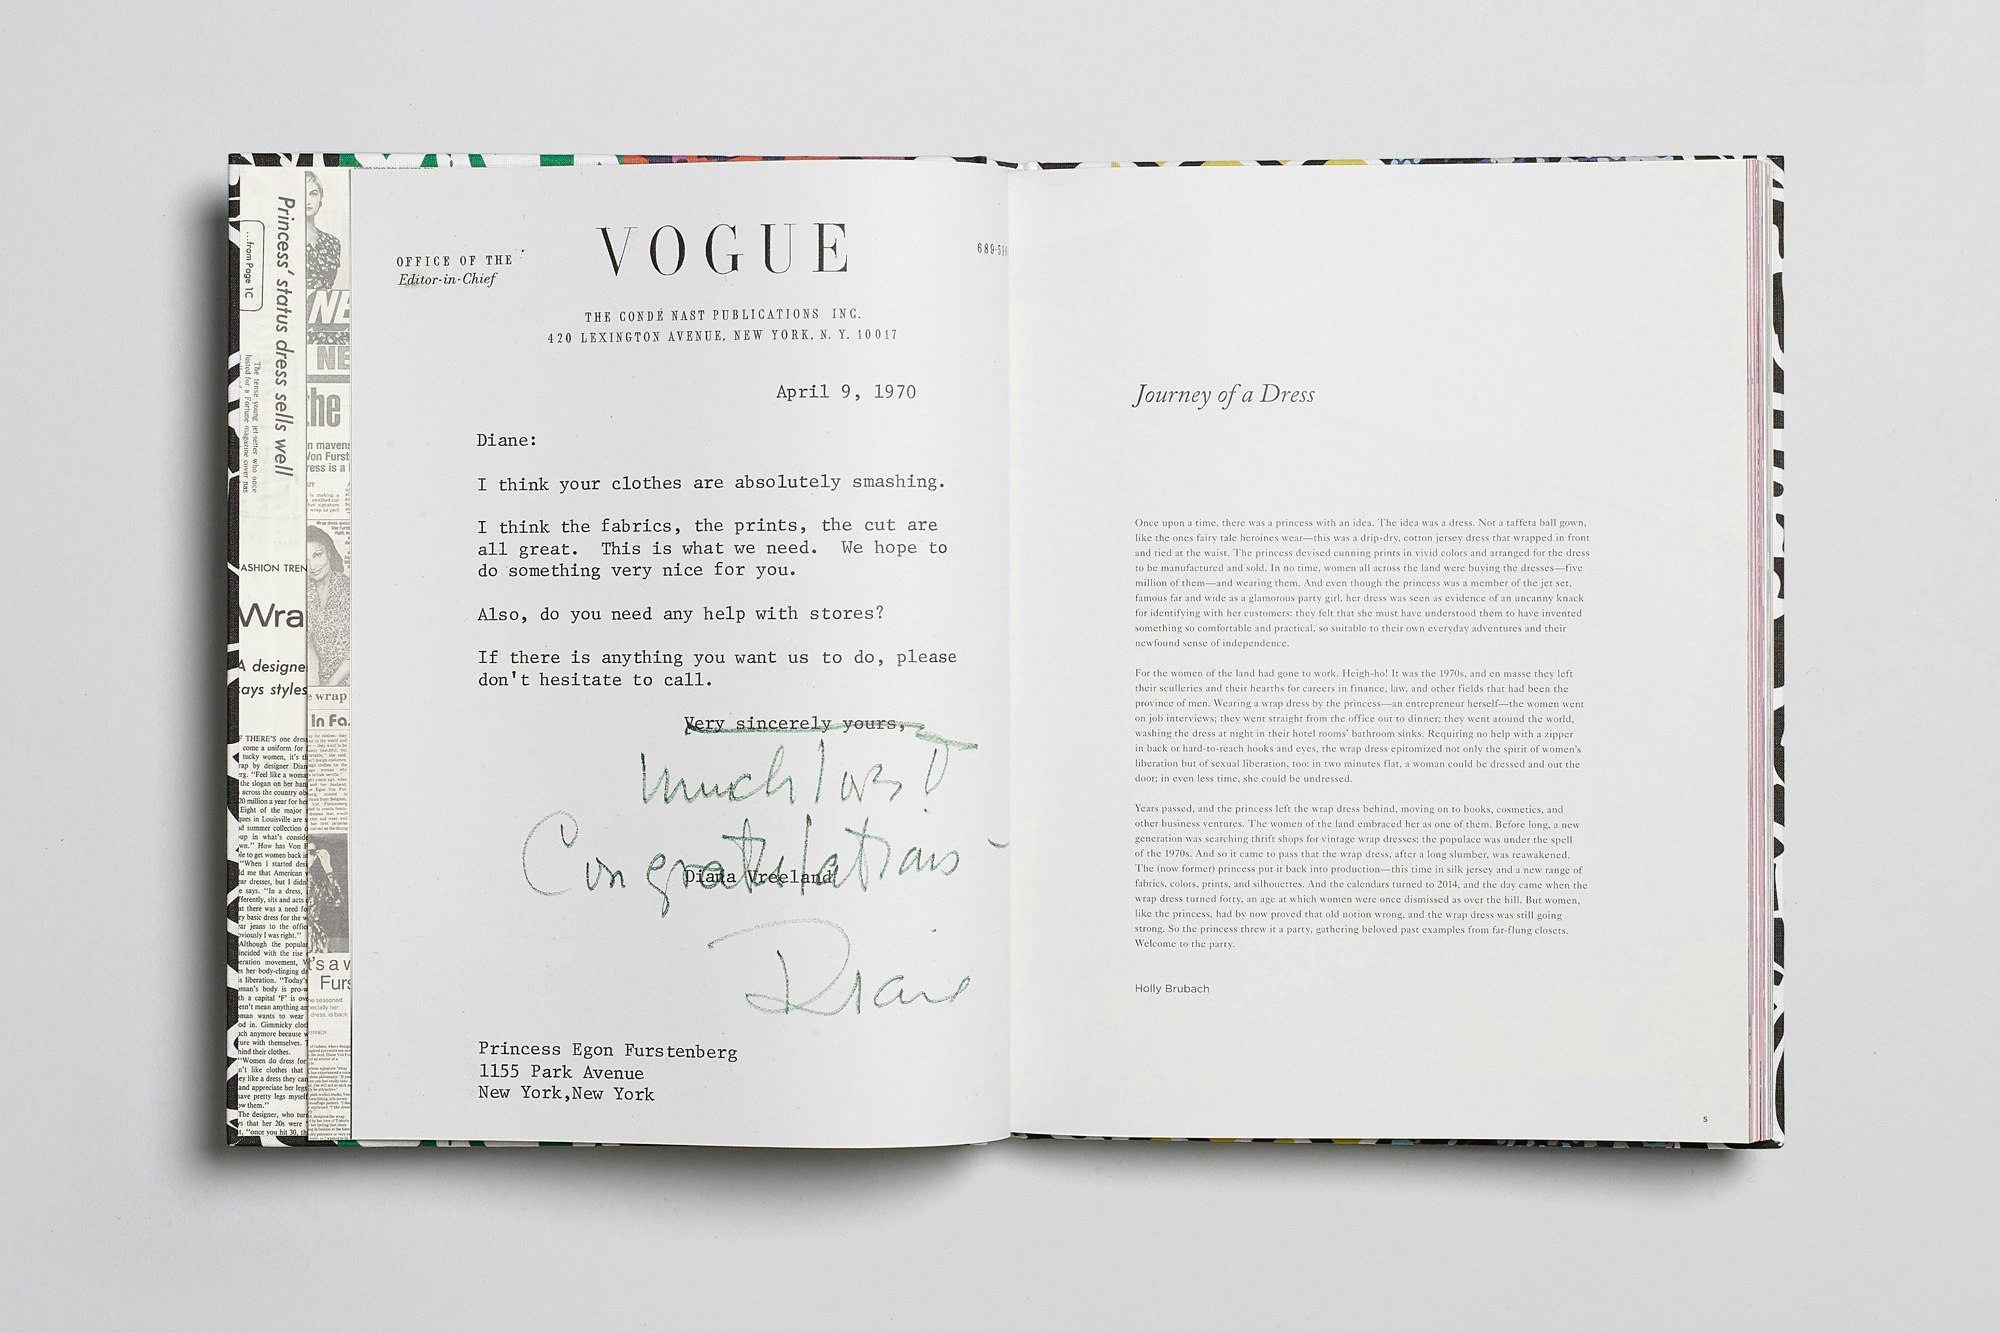 Princess' status dress sells well
...from Page 1C
The tense young jet-setter who once
lusted for a Fortune magazine cover has
FASHION TREN
Wra
A designe
says styles
NE
NE
the
n mavens
Von Furst
ress is a
e wrap
In Fa
t's a w
Furs
F THERE'S one dress
come a uniform for
tucky women, it's th
rap by designer Dian
erg. "Feel like a woma
the slogan on her han
across the country ob
20 million a year for her
Eight of the major
ques in Louisville are s
d summer collection o
up in what's conside
wn." How has Von F
le to get women back in
"When I started desi
d me that American w
ear dresses, but I didn
e says. "In a dress,
fferently, sits and acts
at there was a need fo
ry basic dress for the w
ear jeans to the offic
bviously I was right."
Although the popular
incided with the rise o
eration movement, V
es her body-clinging dr
is liberation. "Today's
man's body is pro-w
th a capital 'F' is ove
esn't mean anything an
oman wants to wear
od in. Gimmicky clot
uch anymore because w
ture with themselves. T
hind their clothes.
"Women do dress for
n't like clothes that
ey like a dress they can
and appreciate her legs
have pretty legs myself
ow them."
The designer, who turn
ys that her 20s were
t, "once you hit 30, th
OFFICE OF THE
Editor-in-Chief
VOGUE
689-590
THE CONDÉ NAST PUBLICATIONS INC.
420 LEXINGTON AVENUE, NEW YORK, N. Y. 10017
April 9, 1970
Diane:
I think your clothes are absolutely smashing.
I think the fabrics, the prints, the cut are
all great. This is what we need. We hope to
do something very nice for you.
Also, do you need any help with stores?
If there is anything you want us to do, please
don't hesitate to call.
Very sincerely yours,
much love!
Congratulations
Diana Vreeland
Diane
Princess Egon Furstenberg
1155 Park Avenue
New York,New York
Journey of a Dress
Once upon a time, there was a princess with an idea. The idea was a dress. Not a taffeta ball gown,
like the ones fairy tale heroines wear—this was a drip-dry, cotton jersey dress that wrapped in front
and tied at the waist. The princess devised cunning prints in vivid colors and arranged for the dress
to be manufactured and sold. In no time, women all across the land were buying the dresses—five
million of them—and wearing them. And even though the princess was a member of the jet set,
famous far and wide as a glamorous party girl, her dress was seen as evidence of an uncanny knack
for identifying with her customers: they felt that she must have understood them to have invented
something so comfortable and practical, so suitable to their own everyday adventures and their
newfound sense of independence.
For the women of the land had gone to work. Heigh-ho! It was the 1970s, and en masse they left
their sculleries and their hearths for careers in finance, law, and other fields that had been the
province of men. Wearing a wrap dress by the princess—an entrepreneur herself—the women went
on job interviews; they went straight from the office out to dinner; they went around the world,
washing the dress at night in their hotel rooms' bathroom sinks. Requiring no help with a zipper
in back or hard-to-reach hooks and eyes, the wrap dress epitomized not only the spirit of women's
liberation but of sexual liberation, too: in two minutes flat, a woman could be dressed and out the
door; in even less time, she could be undressed.
Years passed, and the princess left the wrap dress behind, moving on to books, cosmetics, and
other business ventures. The women of the land embraced her as one of them. Before long, a new
generation was searching thrift shops for vintage wrap dresses; the populace was under the spell
of the 1970s. And so it came to pass that the wrap dress, after a long slumber, was reawakened.
The (now former) princess put it back into production—this time in silk jersey and a new range of
fabrics, colors, prints, and silhouettes. And the calendars turned to 2014, and the day came when the
wrap dress turned forty, an age at which women were once dismissed as over the hill. But women,
like the princess, had by now proved that old notion wrong, and the wrap dress was still going
strong. So the princess threw it a party, gathering beloved past examples from far-flung closets.
Welcome to the party.
Holly Brubach
5